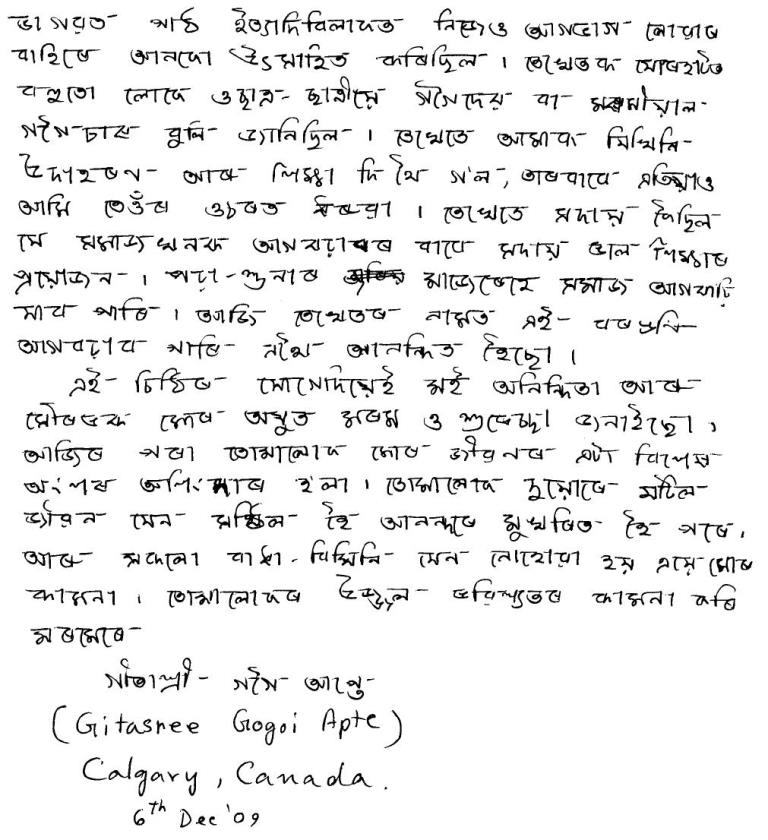 ভাগৱত পাঠ ইত্যাদিবিলাকত নিজেও আগভাগ লোৱাৰ
বাহিৰে আনকো উৎসাহিত কৰিছিল। তেখেতক যোৰহাটৰ
বহুতো লোকে ও ছাত্ৰ-ছাত্ৰীয়ে গগৈদেৱ বা
গগৈচাৰ বুলি জানিছিল। তেখেতে আমাক যিখিনি
উদাহৰণ আৰু শিক্ষা দি থৈ গ'ল, তাৰবাবে এতিয়াও
আমি তেওঁৰ ওচৰত ঋণী। তেখেতে সদায় কৈছিল
যে সমাজখনক আগবঢ়াবৰ বাবে সদায় ভাল শিক্ষাৰ
প্ৰয়োজন। পঢ়া-শুনাৰ মাজেৰেহে সমাজ আগবাঢ়ি
যাব পাৰি। আজি তেখেতৰ নামত এই বৰঙণি
আগবঢ়াব পাৰি মই আনন্দিত হৈছো।
এই চিঠিৰ যোগেদিয়েই মই অনিন্দিতা আৰু
সৌৰভক মোৰ অযুত মৰম ও শুভেচ্ছা জনাইছো।
আজিৰ পৰা তোমালোক মোৰ জীৱনৰ এটা বিশেষ
অংশৰ অংশিদাৰ হ'লা। তোমালোক দুয়োৰে
জীৱন যেন হৈ আনন্দৰে মুখৰিত হৈ পৰে,
আৰু সকলো বাধা-বিঘিনি যেন নোহোৱা হয় এয়ে মোৰ
কামনা। তোমালোকৰ উজ্জ্বল ভৱিষ্যতৰ কামনা কৰি
মৰমেৰে
গীতাশ্ৰী গগৈ আপ্তে
(Gitasree Gogoi Apte)
Calgary, Canada.
6th Dec '09